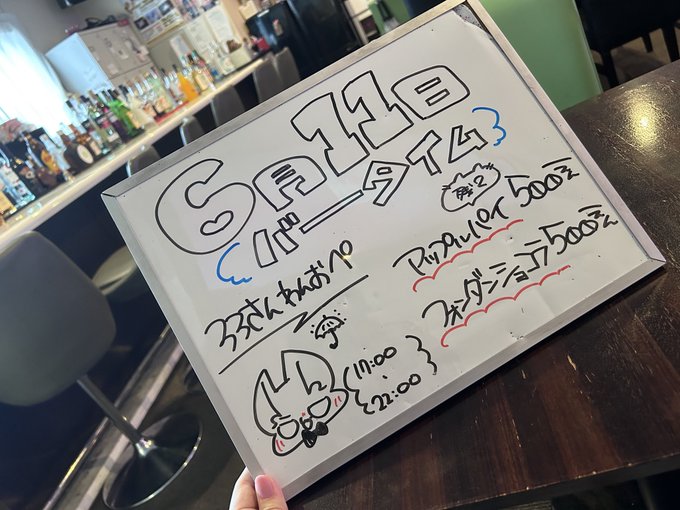 6月11日
バータイム
ろろさんわんおぺ
17:00
22:00
残2
アップルパイ 500えん
フォンダンショコラ 500えん